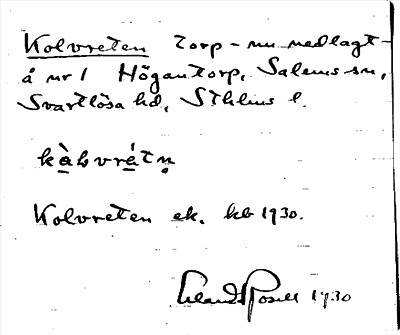 Kolvreten torp - nu nedlagt -
å nr 1 Högantorp, Salems sn,
Svartlösa hd, Sthlms l.
kà̱lvré̱tn̥
Kolvreten ek. kb 1930.
Erland Rosell 1930